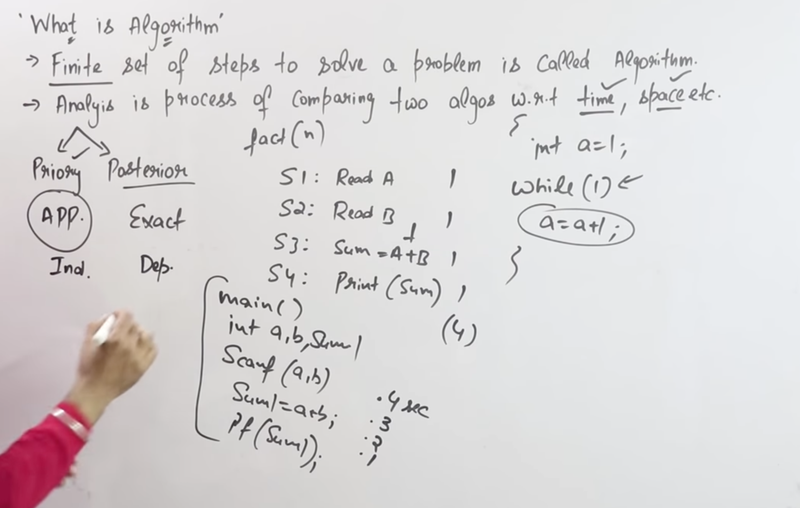 'What is Algorithm'
→ Finite set of steps to solve a problem is called Algorithm.
→ Analyis is process of comparing two algos w.r.t time, space etc.
Priory Posterior
APP. Exact
Ind. Dep.
fact(n)
S1: Read A 1
S2: Read B 1
S3: Sum=A+B 1
S4: Print (Sum) 1
(4)
main()
int a,b,Sum1
Scanf (a,b)
Sum1=a+b;
Pf(Sum1);
.4 sec
.3
.2
{
int a=1;
while(1) ←
a=a+1;
}